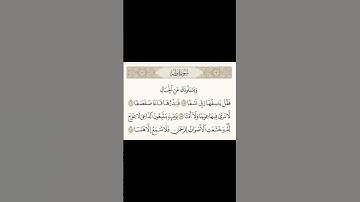 سورة طه
ويسألونك عن الجبال
فقل ينسفها ربي نسفا فيذرها قاعا صفصفا
لا ترى فيها عوجا ولا أمتا يومئذ يتبعون الداعي لا عوج
له وخشعت الأصوات للرحمن فلا تسمع إلا همسا